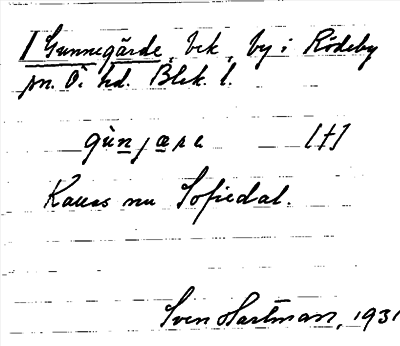 † Gunnegärde, bek, by i Rödeby
sn. Ö. hd. Blek. l.
gùnjæra [†]
Kallas nu Sofiedal.
Sven Hartman, 1931